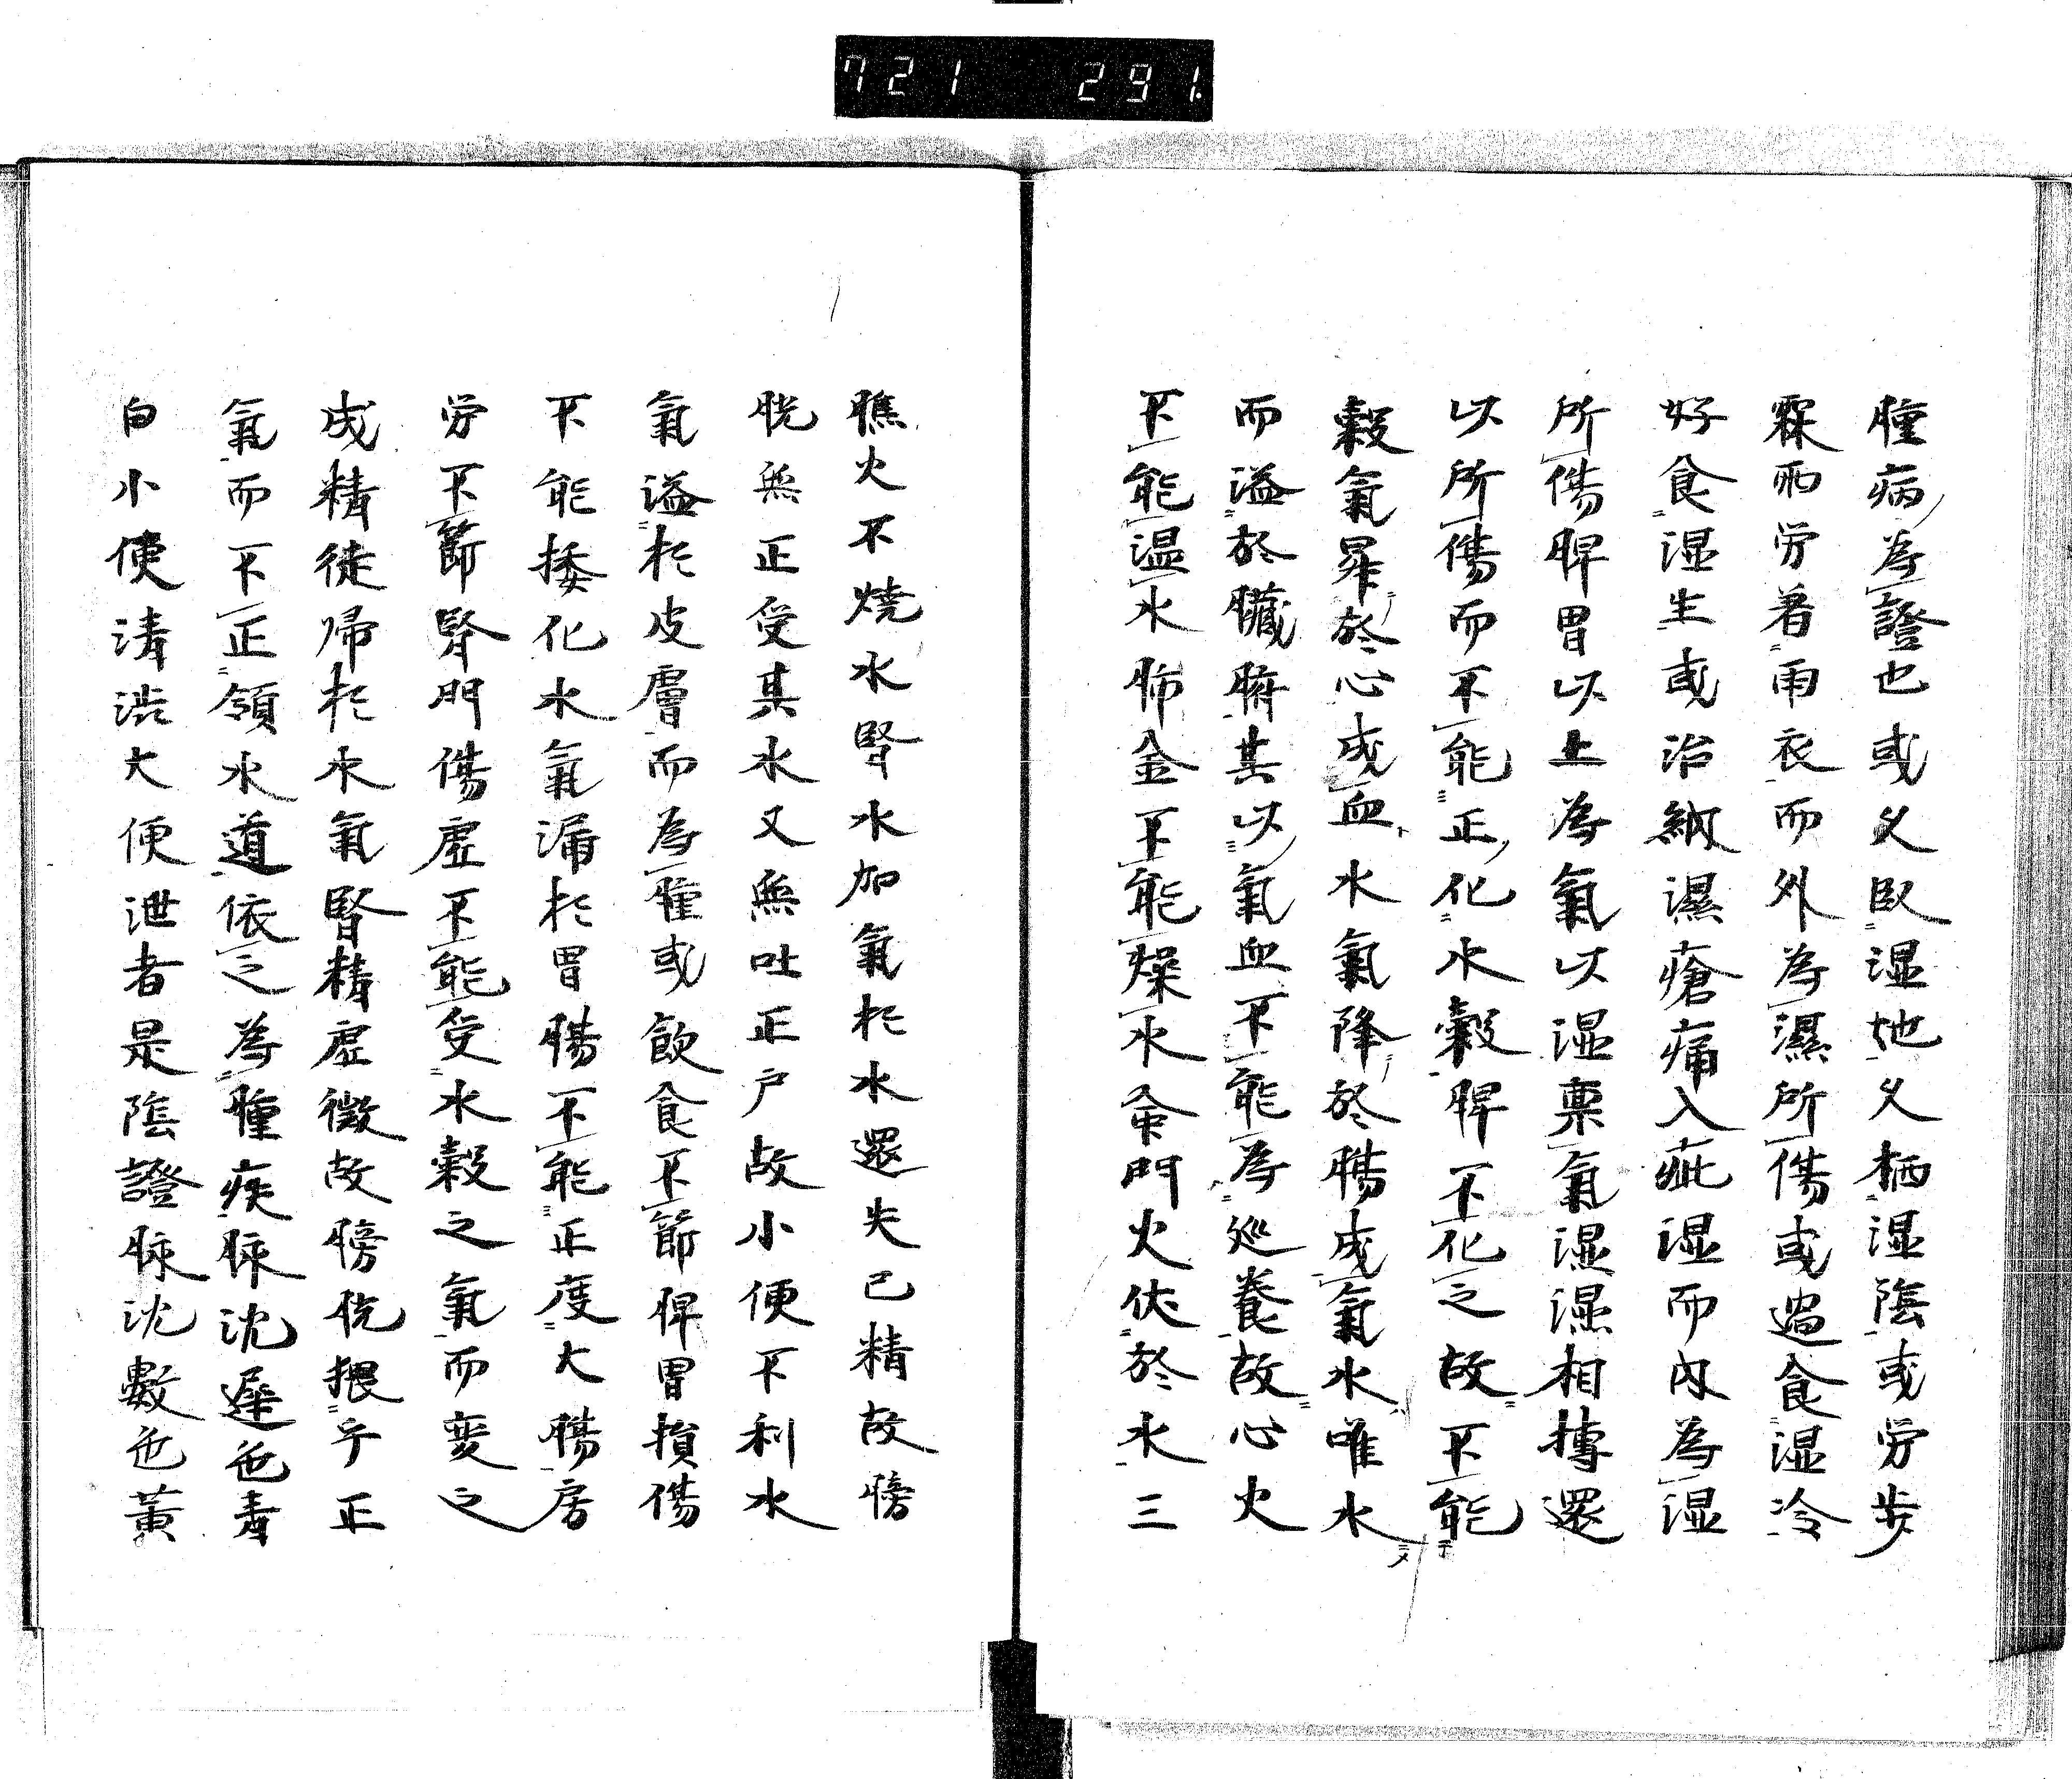 721 291.
腫病為證也或久臥湿地久栖湿陰或労歩
霖雨労着雨衣而外為濕所傷或過食湿冷
好食湿生或治紙濕瘡痛入疵湿而内為湿
所傷脾胃以上為氣以湿稟氣湿濕相摶還
以所傷而不能正化水穀脾不化之故不能
穀氣昇於心成血水氣降於腸成氣水唯水
而溢於臓腑其以氣血不能為巡養故心火
不能温水肺金不能燥水命門火伏於水三
膲火不焼水腎水加氣於水還失已精故膀
胱無正受其水又無吐正戸故小便不利水
氣溢於皮膚而為腫或飲食不節脾胃損傷
不能捼化水氣漏於胃腸不能正度大腸房
労不節腎門傷虚不能受水穀之氣而変之
成精徒帰於水氣腎精虚微故膀胱損乎正
氣而不正領水道依之為腫疾脉沈遅色青
白小便清渋大便泄者是陰證脉沈數色黄